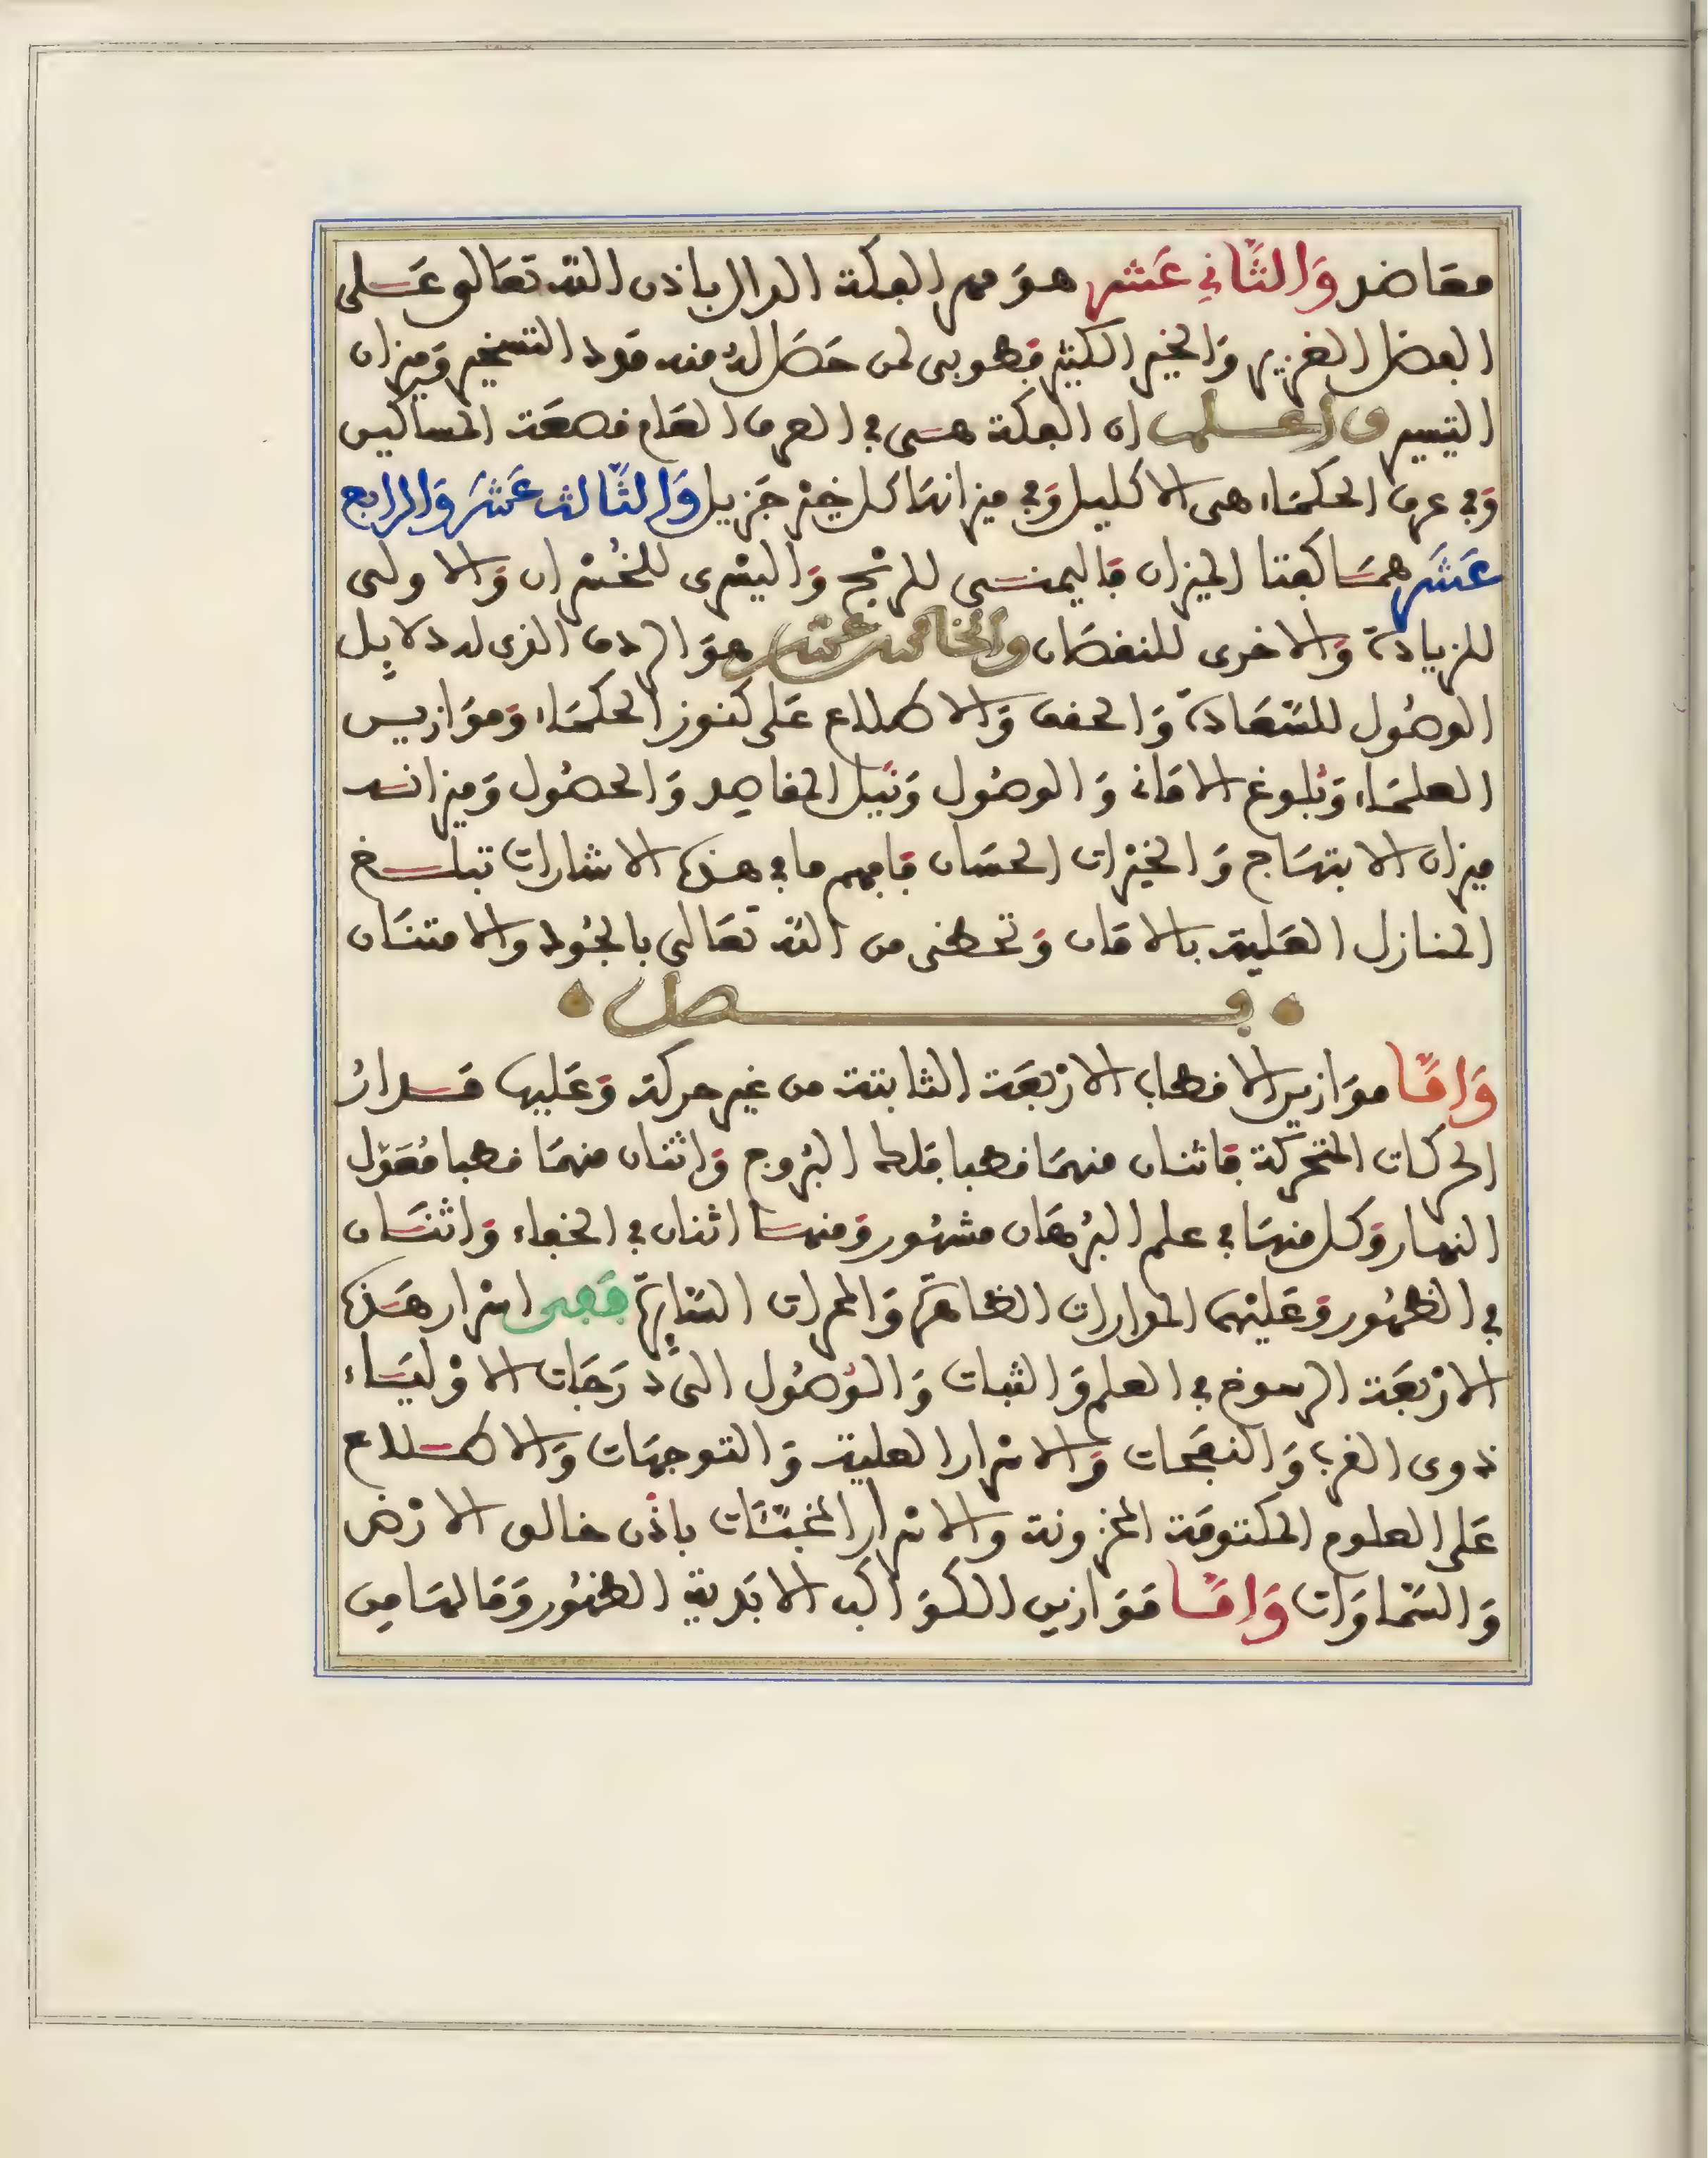 معَاضد وَالثَّانِي عَشر هوَ ممر الفكة الدال باذن الله تعَالى عَلى
الفضل الغزير وَالخير الكثير فهو بى لمن حَصَل لهُ منه قود التسخير وَميزان
التيسير واعلم ان الفكة هى في العرف العَام قصعَة المساكين
وَفي عرف الحكمَاء هى الاكليل وَفي ميزانهَا كل خيْر جَزيل وَالثَّالث عَشَر وَالرابع
عَشَر همَا كفتا الميزان فاليمنى للربْح وَاليسْرى للخُسْران وَالاولى
للزيادة وَالاخرى للنقصَان والخامس عشر هوَ الردف الذى له دلايِل
الوصُول للسَّعَادة وَالحفف وَالاطلاع عَلى كنوز الحكمَاء وَموَازين
العلمَاء وَبُلوغ الامَانى وَالوصُول وَنَيل المقاصِد وَالحصُول وَميزانه
ميزان الابتهَاج وَالخيْرات الحسَان فافهم ما في هذه الاشارات تبلغ
المنازل العَلية بالامَان وَتحظى من الله تعَالى بالجُود والامتنَان
فصل
وَامَّا موَازين الاقطاب الارْبعَة الثابتة من غير حركة وَعَليها مَدارُ
الحركات المتحركة فاثنان منهمَا قطبا فلك البُروج وَاثنان منهمَا قطبا مُعَدّل
النهار وَكل منهمَا في علم البُرهَان مشهُور وَمنهما اثنان في الخفاء وَاثنَان
في الظهُور وَعَليْهما المدارات الظاهرَة وَالممرات السَّايرَة فَفى اسْرار هَذه
الارْبعَة الرسوخ في العلم وَالثبات وَالوُصُول الىَ دَرَجَات الاوْليَاء
ذوى القرب وَالنفحَات وَالاسْرار العلية وَالتوجهَات وَالاطلاع
عَلى العلوم المكتومَة المخزونة والاسْرار المخبئَات باذْن خالق الارْض
وَالسَّماوَات وَامَّا مَوَازين الكوَاكب الابَدية الظهُور وَمَا لهَا من